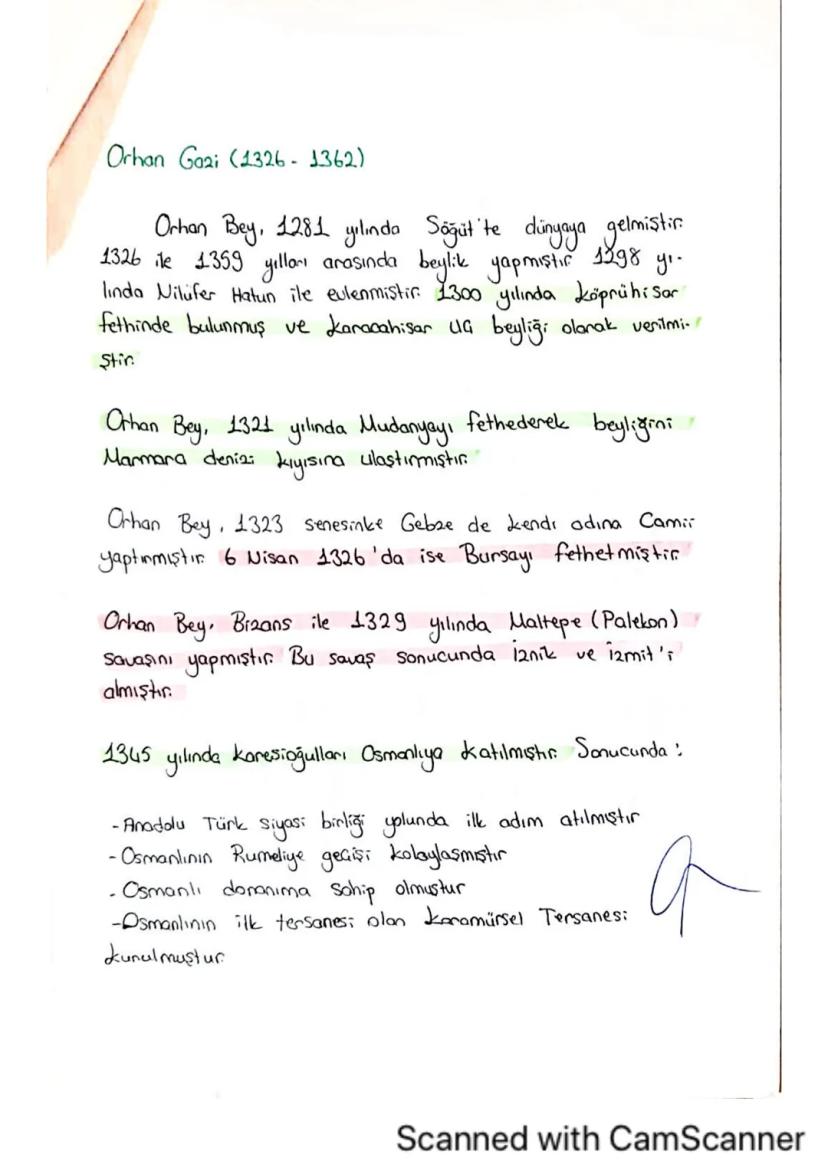 Orhan Gazi (1326 - 1362)
Orhan Bey, 1281 yılında Söğüt'te dünyaya gelmiştir.
1326 ile 1359 yılları arasında beylik yapmıştır 1298 yı-
lında Nilüfer Hatun ile evlenmiştir. 1300 yılında Köprühisar
fethinde bulunmuş ve Karacahisar UG beyliği olarak verilmi-
ştir.
Orhan Bey, 1321 yılında Mudanyayı fethederek beyliğini
Marmara denizi kıyısına ulaştırmıştır.
Orhan Bey, 1323 senesinke Gebze de kendi adına Camii
yaptırmıştır. 6 Nisan 1326'da ise Bursayı fethetmiştir.
Orhan Bey, Bizans ile 1329 yılında Maltepe (Palekon)
savaşını yapmıştır. Bu savaş sonucunda İznik ve İzmit'i
almıştır.
1345 yılında karesioğulları Osmanlıya katılmıştır. Sonucunda:
-Anadolu Türk siyasi birliği yolunda ilk adım atılmıştır
-Osmanlının Rumeliye geçişi kolaylaşmıştır
-Osmanlı donanıma sahip olmuştur
-Osmanlının ilk tersanesi olan Karamürsel Tersanesi
kurulmuştur.
Scanned with CamScanner